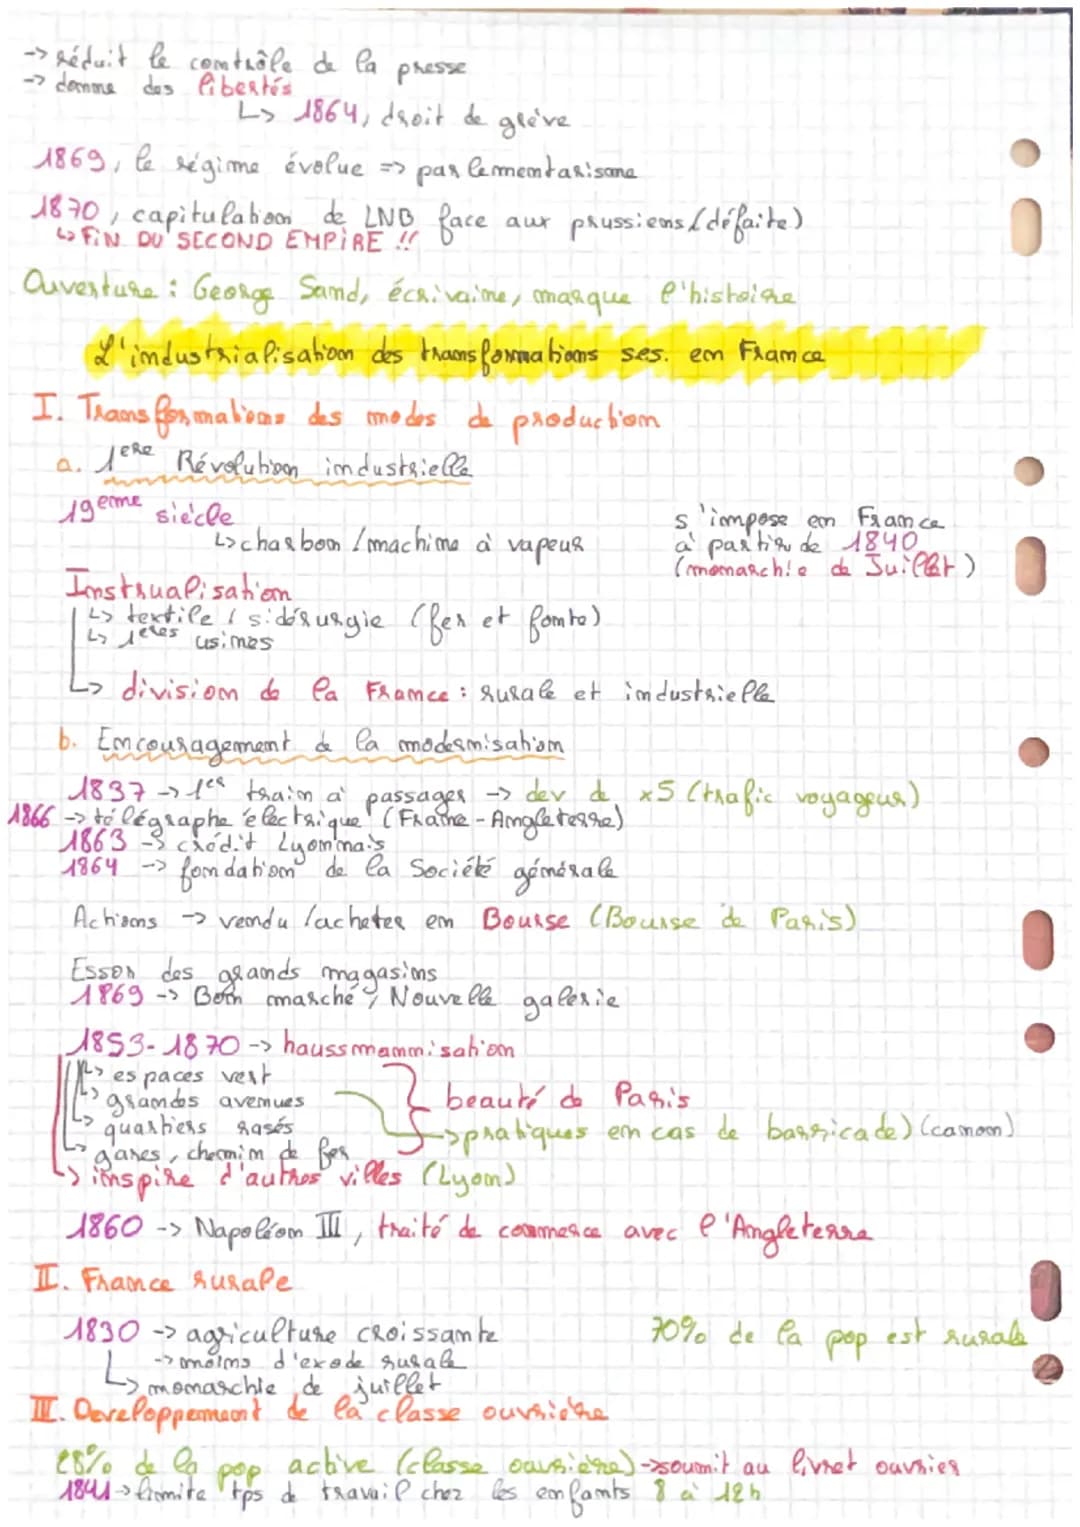 -> réduit le contrôle de la presse
-> donne des libertés
↳ 1864, droit de grève
1869, le régime évolue => parlementarisme
1870, capitulation de LNB face aux prussiens (défaite)
↳ FIN DU SECOND EMPIRE !!
Ouverture : George Sand, écrivaine, marque l'histoire
L'industrialisation des transformations ses. en France
I. Transformations des modes de production
a. 1ère Révolution industrielle
19eme siècle
↳ charbon / machine à vapeur
s'impose en France
à partir de 1840
(monarchie de Juillet)
Instrualisation
↳ textile / sidérurgie (fer et fonte)
↳ 1eres usines
↳ division de la France : rurale et industrielle
b. Encouragement de la modernisation
1837 -> 1er train à passages -> dev de x5 (trafic voyageur)
1866 -> télégraphe électrique (France - Angleterre)
1863 -> crédit Lyonnais
1864 -> fondation de la Société générale
Actions -> vendu / acheter en Bourse (Bourse de Paris)
Essor des grands magasins
1869 -> Bon marché, Nouvelle galerie
1853-1870 -> haussmannisation
↳ espaces vert
↳ grandes avenues
↳ quartiers rasés
↳ gares, chemin de fer
beauté de Paris
-> pratiques en cas de barricade) (canon)
↳ inspire d'autres villes (Lyon)
1860 -> Napoléon III, traité de commerce avec l'Angleterre
II. France rurale
1830 -> agriculture croissante
70% de la pop est rurale
-> moins d'exode rurale
↳ monarchie de juillet
III. Developpement de la classe ouvrière
28% de la pop active (classe ouvrière) -> soumit au livret ouvrier
1841 -> limite tps de travail chez les enfants 8 à 12h